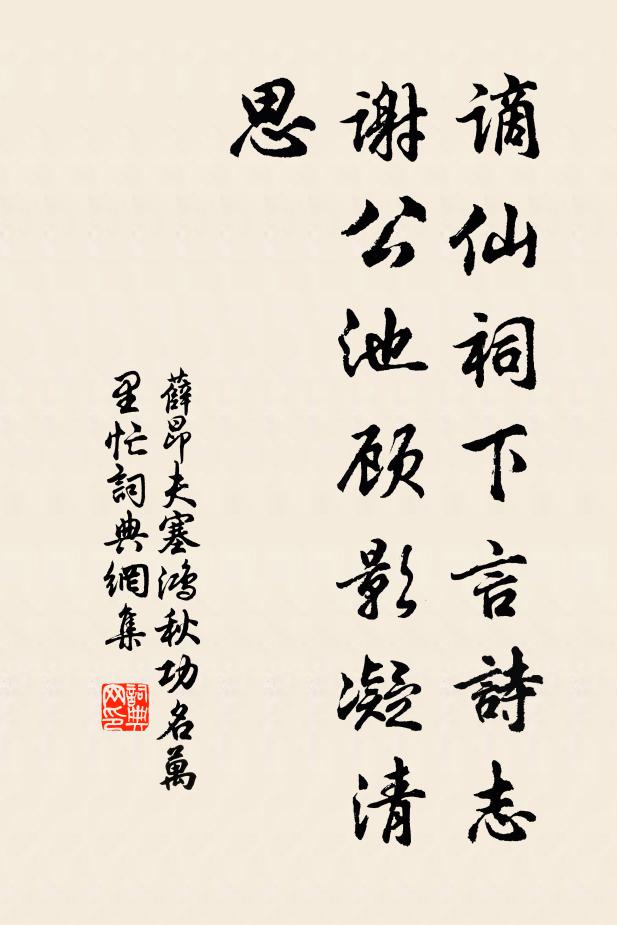 谪仙祠下言詩志
谢公池顾影凝清
思
薛昂夫塞鴻秋功名萬
里忙詞典網集
詞典
网印